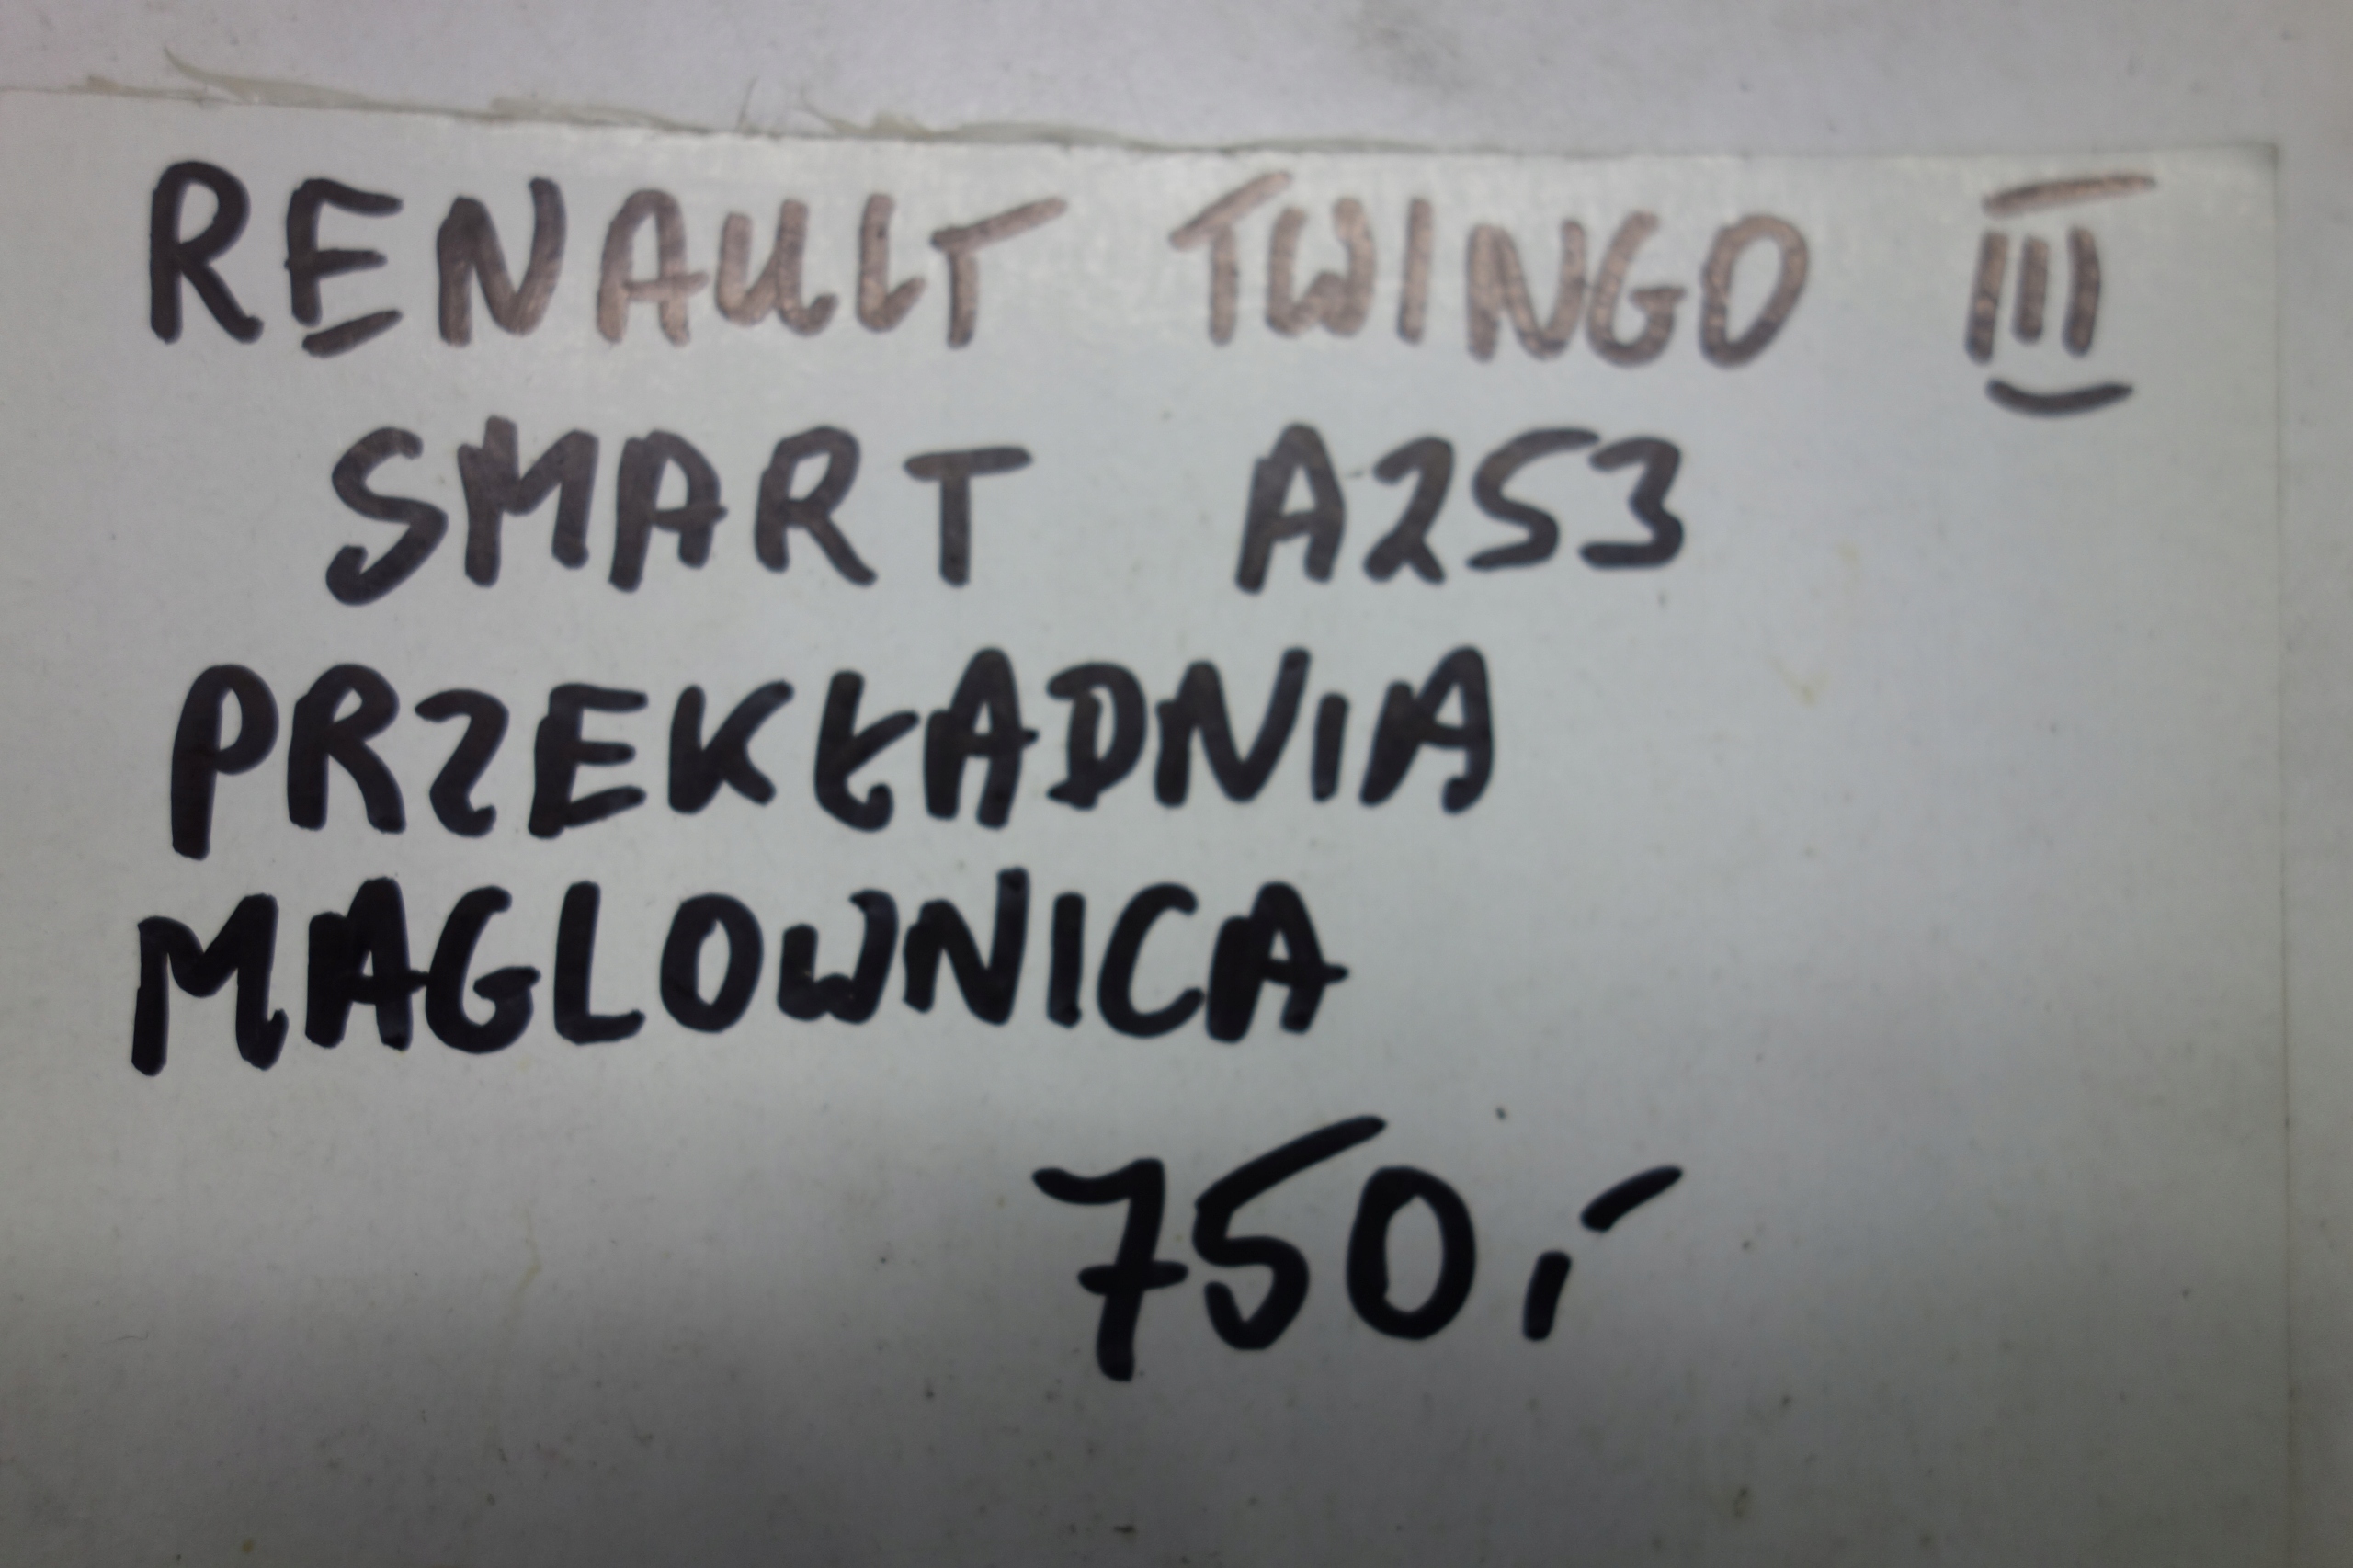 RENAULT TWINGO III
SMART A253
PRZEKŁADNIA
MAGLOWNICA
750,-